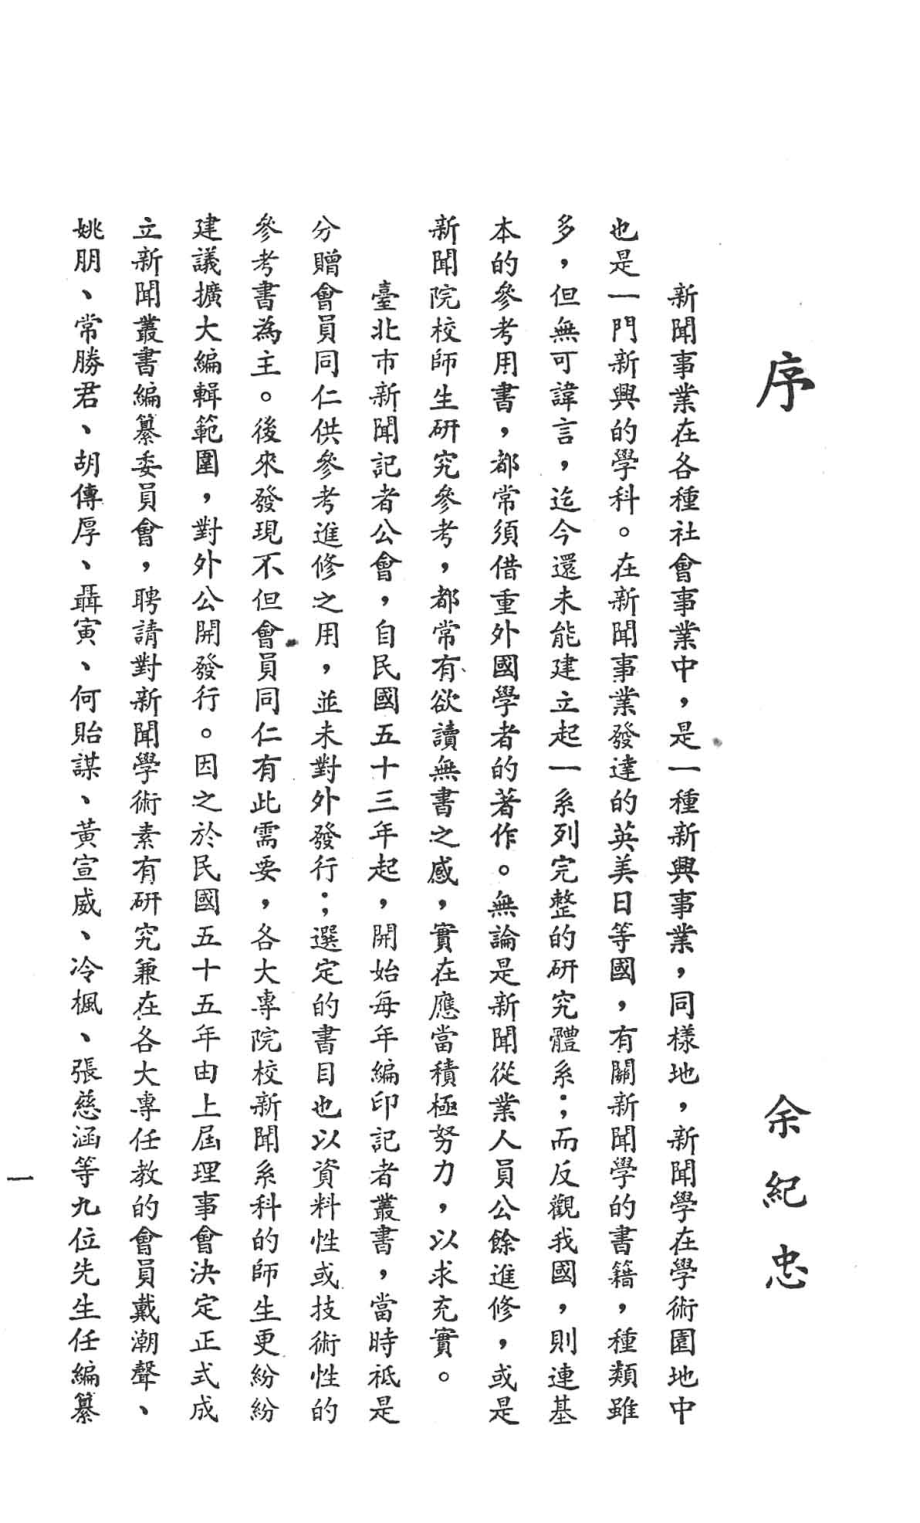 序
余紀忠
新聞事業在各種社會事業中，是一種新興事業，同樣地，新聞學在學術園地中
也是一門新興的學科。在新聞事業發達的英美日等國，有關新聞學的書籍，種類雖
多，但無可諱言，迄今還未能建立起一系列完整的研究體系；而反觀我國，則連基
本的參考用書，都常須借重外國學者的著作。無論是新聞從業人員公餘進修，或是
新聞院校師生研究參考，都常有欲讀無書之感，實在應當積極努力，以求充實。
臺北市新聞記者公會，自民國五十三年起，開始每年編印記者叢書，當時祗是
分贈會員同仁供參考進修之用，並未對外發行；選定的書目也以資料性或技術性的
參考書為主。後來發現不但會員同仁有此需要，各大專院校新聞系科的師生更紛紛
建議擴大編輯範圍，對外公開發行。因之於民國五十五年由上屆理事會決定正式成
立新聞叢書編纂委員會，聘請對新聞學術素有研究兼在各大專任教的會員戴潮聲、
姚朋、常勝君、胡傳厚、聶寅、何貽謀、黃宣威、冷楓、張慈涵等九位先生任編纂
一